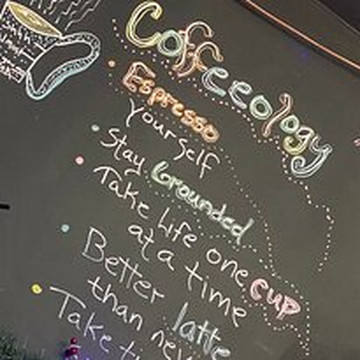 Coffeeology
Espresso
Yourself
Stay Grounded
Take life one cup
at a time
Better latte
than
Take